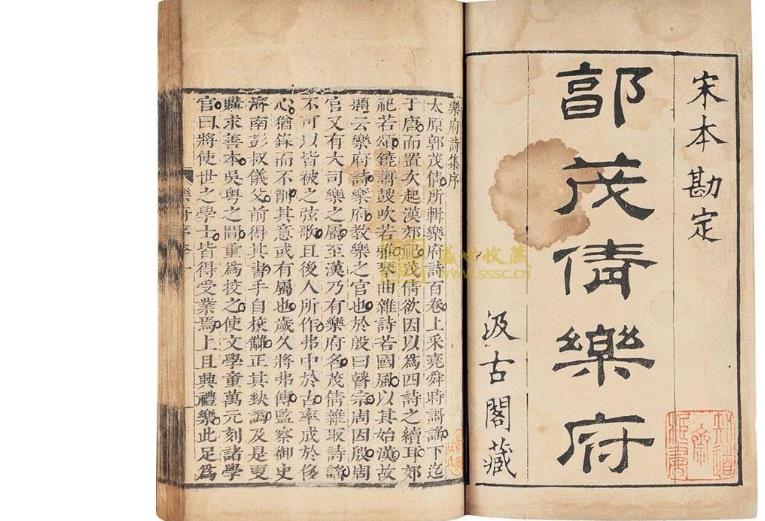 宋本勘定
郭茂倩樂府
汲古閣藏
樂府詩集序
太原郭茂倩所輯樂府詩百卷上采堯舜時謌謠下迄
于唐而置次起漢郊祀茂倩欲因以為四詩之續耳郊
祀若頌鐃謌鼓吹若雅琴曲雜詩若國風以其始漢故
題云樂府詩樂府教樂之官也於殷曰瞽宗周因殷周
官又有大司樂之屬至漢乃有樂府名茂倩雜取詩謠
不可以皆被之弦歌且後人所作弗中於古率成於後
心猶錄而不削其意或有屬也歲久將弗傳監察御史
濟南彭叔儀父前得其書手自挍讎正其缺譌及是更
購求善本吳粵之間重為挍之使文學童萬元刻諸學
官曰將使世之學士皆得受業焉上且典禮樂此足為
樂府序
www.sssc.cn